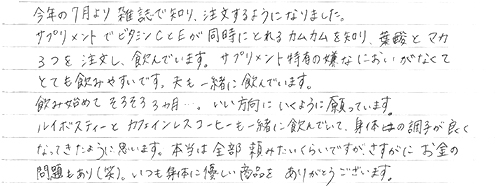 今年の7月より 雑誌で知り、注文するようになりました。
サプリメントでビタミンCとEが同時にとれるカムカムを知り、葉酸とマカ
3つを注文し、飲んでいます。サプリメント特有の嫌なにおいがなくて
とても飲みやすいです。夫も一緒に飲んでいます。
飲み始めて そろそろ3ヵ月…。いい方向に いくように願っています。
ルイボスティーと カフェインレスコーヒーも一緒に飲んでいて、身体の調子が良く
なってきたように思います。本当は全部頼みたいくらいですが、さすがに お金の
問題もあり(笑)。いつも身体に優しい商品を ありがとうございます。